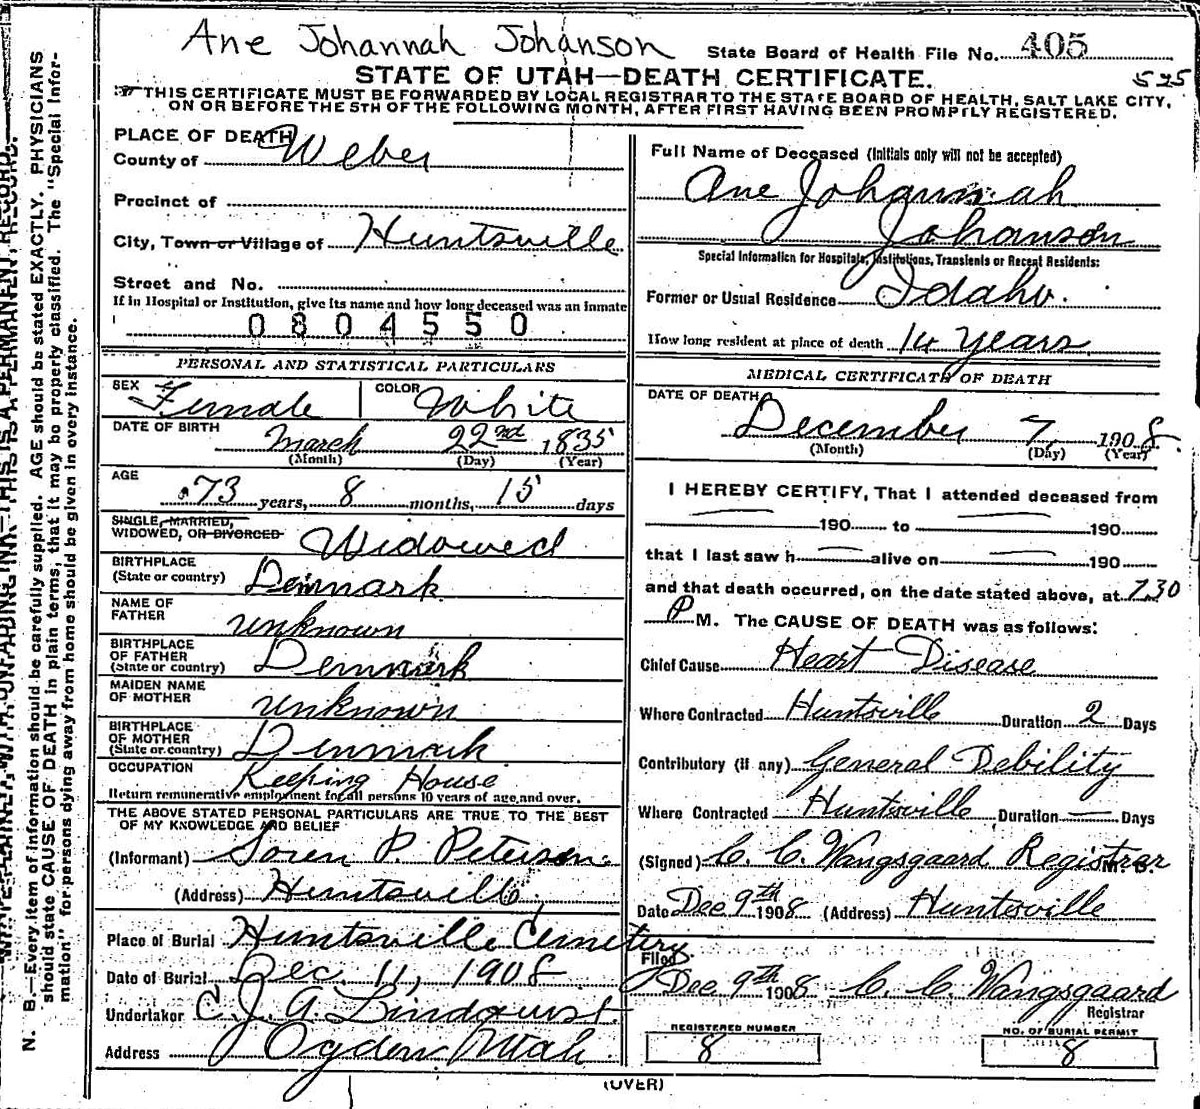 Ane Johannah Johanson State Board of Health File No. 405
STATE OF UTAH—DEATH CERTIFICATE. 525
THIS CERTIFICATE MUST BE FORWARDED BY LOCAL REGISTRAR TO THE STATE BOARD OF HEALTH, SALT LAKE CITY,
ON OR BEFORE THE 5TH OF THE FOLLOWING MONTH, AFTER FIRST HAVING BEEN PROMPTLY REGISTERED.
PLACE OF DEATH
County of Weber
Precinct of
City, Town or Village of Huntsville
Street and No.
If in Hospital or Institution, give its name and how long deceased was an inmate
0804550
PERSONAL AND STATISTICAL PARTICULARS
SEX Female COLOR White
DATE OF BIRTH March 22nd 1835
(Month) (Day) (Year)
AGE 73 years, 8 months, 15 days
SINGLE, MARRIED,
WIDOWED, OR DIVORCED Widowed
BIRTHPLACE
(State or country) Denmark
NAME OF
FATHER unknown
BIRTHPLACE
OF FATHER
(State or country) Denmark
MAIDEN NAME
OF MOTHER unknown
BIRTHPLACE
OF MOTHER
(State or country) Denmark
OCCUPATION Keeping House
Return remunerative employment for all persons 10 years of age and over.
THE ABOVE STATED PERSONAL PARTICULARS ARE TRUE TO THE BEST
OF MY KNOWLEDGE AND BELIEF
(Informant) Soren P. Peterson
(Address) Huntsville,
Place of Burial Huntsville Cemetery
Date of Burial Dec. 11, 1908
Undertaker C. J. A. Lindquist
Address Ogden Utah
Full Name of Deceased (Initials only will not be accepted)
Ane Johannah
Johanson
Special Information for Hospitals, Institutions, Transients or Recent Residents:
Former or Usual Residence Idaho.
How long resident at place of death 14 years
MEDICAL CERTIFICATE OF DEATH
DATE OF DEATH
December 7, 1908
(Month) (Day) (Year)
I HEREBY CERTIFY, That I attended deceased from
190 to 190
that I last saw h alive on 190
and that death occurred, on the date stated above, at 7.30
P M. The CAUSE OF DEATH was as follows:
Chief Cause Heart Disease
Where Contracted Huntsville Duration 2 Days
Contributory (if any) General Debility
Where Contracted Huntsville Duration — Days
(Signed) C. C. Wangsgaard Registrar M. D.
Date Dec 9th 1908 (Address) Huntsville
Filed
Dec 9th 1908 C. C. Wangsgaard
Registrar
REGISTERED NUMBER
8
NO. OF BURIAL PERMIT
8
(OVER)
N. B.—Every item of information should be carefully supplied. AGE should be stated EXACTLY. PHYSICIANS
should state CAUSE OF DEATH in plain terms, that it may be properly classified. The "Special Infor-
mation" for persons dying away from home should be given in every instance.
WRITE PLAINLY, WITH UNFADING INK—THIS IS A PERMANENT RECORD.